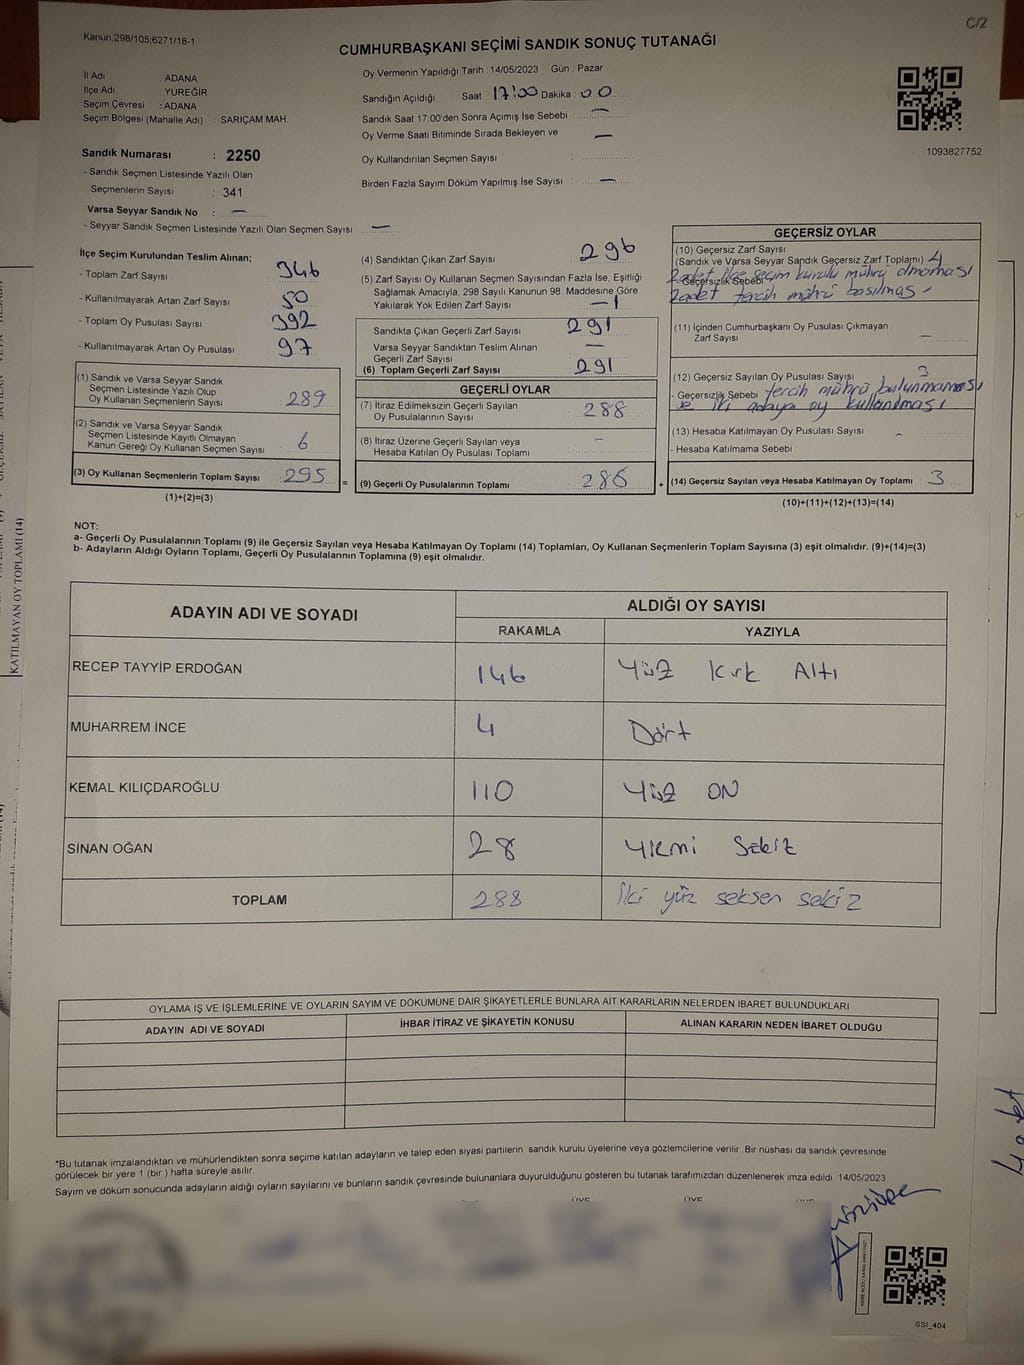 C/2
Kanun,298/105;6271/18-1
CUMHURBAŞKANI SEÇİMİ SANDIK SONUÇ TUTANAĞI
İl Adı : ADANA
İlçe Adı : YÜREĞİR
Seçim Çevresi : ADANA
Seçim Bölgesi (Mahalle Adı) : SARIÇAM MAH.
Oy Vermenin Yapıldığı Tarih : 14/05/2023 Gün : Pazar
Sandığın Açıldığı Saat : 17:00 Dakika : 00
Sandık Saat 17:00'den Sonra Açımış İse Sebebi : —
Oy Verme Saati Bitiminde Sırada Bekleyen ve —
Oy Kullandırılan Seçmen Sayısı :
Birden Fazla Sayım Döküm Yapılmış İse Sayısı : —
1093827752
Sandık Numarası : 2250
- Sandık Seçmen Listesinde Yazılı Olan
Seçmenlerin Sayısı : 341
Varsa Seyyar Sandık No : —
- Seyyar Sandık Seçmen Listesinde Yazılı Olan Seçmen Sayısı : —
İlçe Seçim Kurulundan Teslim Alınan;
- Toplam Zarf Sayısı 346
- Kullanılmayarak Artan Zarf Sayısı 50
- Toplam Oy Pusulası Sayısı 392
- Kullanılmayarak Artan Oy Pusulası 97
(1) Sandık ve Varsa Seyyar Sandık
Seçmen Listesinde Yazılı Olup
Oy Kullanan Seçmenlerin Sayısı 289
(2) Sandık ve Varsa Seyyar Sandık
Seçmen Listesinde Kayıtlı Olmayan
Kanun Gereği Oy Kullanan Seçmen Sayısı 6
(3) Oy Kullanan Seçmenlerin Toplam Sayısı 295 =
(1)+(2)=(3)
(4) Sandıktan Çıkan Zarf Sayısı 296
(5) Zarf Sayısı Oy Kullanan Seçmen Sayısından Fazla İse, Eşitliği
Sağlamak Amacıyla, 298 Sayılı Kanunun 98. Maddesine Göre
Yakılarak Yok Edilen Zarf Sayısı —1
Sandıkta Çıkan Geçerli Zarf Sayısı 291
Varsa Seyyar Sandıktan Teslim Alınan
Geçerli Zarf Sayısı —
(6) Toplam Geçerli Zarf Sayısı 291
GEÇERLİ OYLAR
(7) İtiraz Edilmeksizin Geçerli Sayılan
Oy Pusulasının Sayısı 288
(8) İtiraz Üzerine Geçerli Sayılan veya
Hesaba Katılan Oy Pusulası Toplamı —
(9) Geçerli Oy Pusulalarının Toplamı 286 +
GEÇERSİZ OYLAR
(10) Geçersiz Zarf Sayısı
(Sandık ve Varsa Seyyar Sandık Geçersiz Zarf Toplamı) 4
- Geçersizlik Sebebi 2 adet ilçe seçim kurulu mührü olmaması
2 adet tercih mührü basılmış
(11) İçinden Cumhurbaşkanı Oy Pusulası Çıkmayan
Zarf Sayısı —
(12) Geçersiz Sayılan Oy Pusulası Sayısı 3
- Geçersizlik Sebebi tercih mührü bulunmaması
ve iki adaya oy kullanılması
(13) Hesaba Katılmayan Oy Pusulası Sayısı —
- Hesaba Katılmama Sebebi
(14) Geçersiz Sayılan veya Hesaba Katılmayan Oy Toplamı 3
(10)+(11)+(12)+(13)=(14)
NOT:
a- Geçerli Oy Pusulalarının Toplamı (9) ile Geçersiz Sayılan veya Hesaba Katılmayan Oy Toplamı (14) Toplamları, Oy Kullanan Seçmenlerin Toplam Sayısına (3) eşit olmalıdır. (9)+(14)=(3)
b- Adayların Aldığı Oyların Toplamı, Geçerli Oy Pusulalarının Toplamına (9) eşit olmalıdır.
ADAYIN ADI VE SOYADI ALDIĞI OY SAYISI
RAKAMLA YAZIYLA
RECEP TAYYİP ERDOĞAN 146 Yüz Kırk Altı
MUHARREM İNCE 4 Dört
KEMAL KILIÇDAROĞLU 110 Yüz ON
SİNAN OĞAN 28 Yirmi Sekiz
TOPLAM 288 İki yüz seksen sekiz
OYLAMA İŞ VE İŞLEMLERİNE VE OYLARIN SAYIM VE DÖKÜMÜNE DAİR ŞİKAYETLERLE BUNLARA AİT KARARLARIN NELERDEN İBARET BULUNDUKLARI
ADAYIN ADI VE SOYADI İHBAR İTİRAZ VE ŞİKAYETİN KONUSU ALINAN KARARIN NEDEN İBARET OLDUĞU
*Bu tutanak imzalandıktan ve mühürlendikten sonra seçime katılan adayların ve talep eden siyasi partilerin sandık kurulu üyelerine veya gözlemcilerine verilir. Bir nüshası da sandık çevresinde
görülecek bir yere 1 (bir ) hafta süreyle asılır.
Sayım ve döküm sonucunda adayların aldığı oyların sayılarını ve bunların sandık çevresinde bulunanlara duyurulduğunu gösteren bu tutanak tarafımızdan düzenlenerek imza edildi. 14/05/2023
ÜYE ÜYE
SSI_404
KATILMAYAN OY TOPLAMI (14)